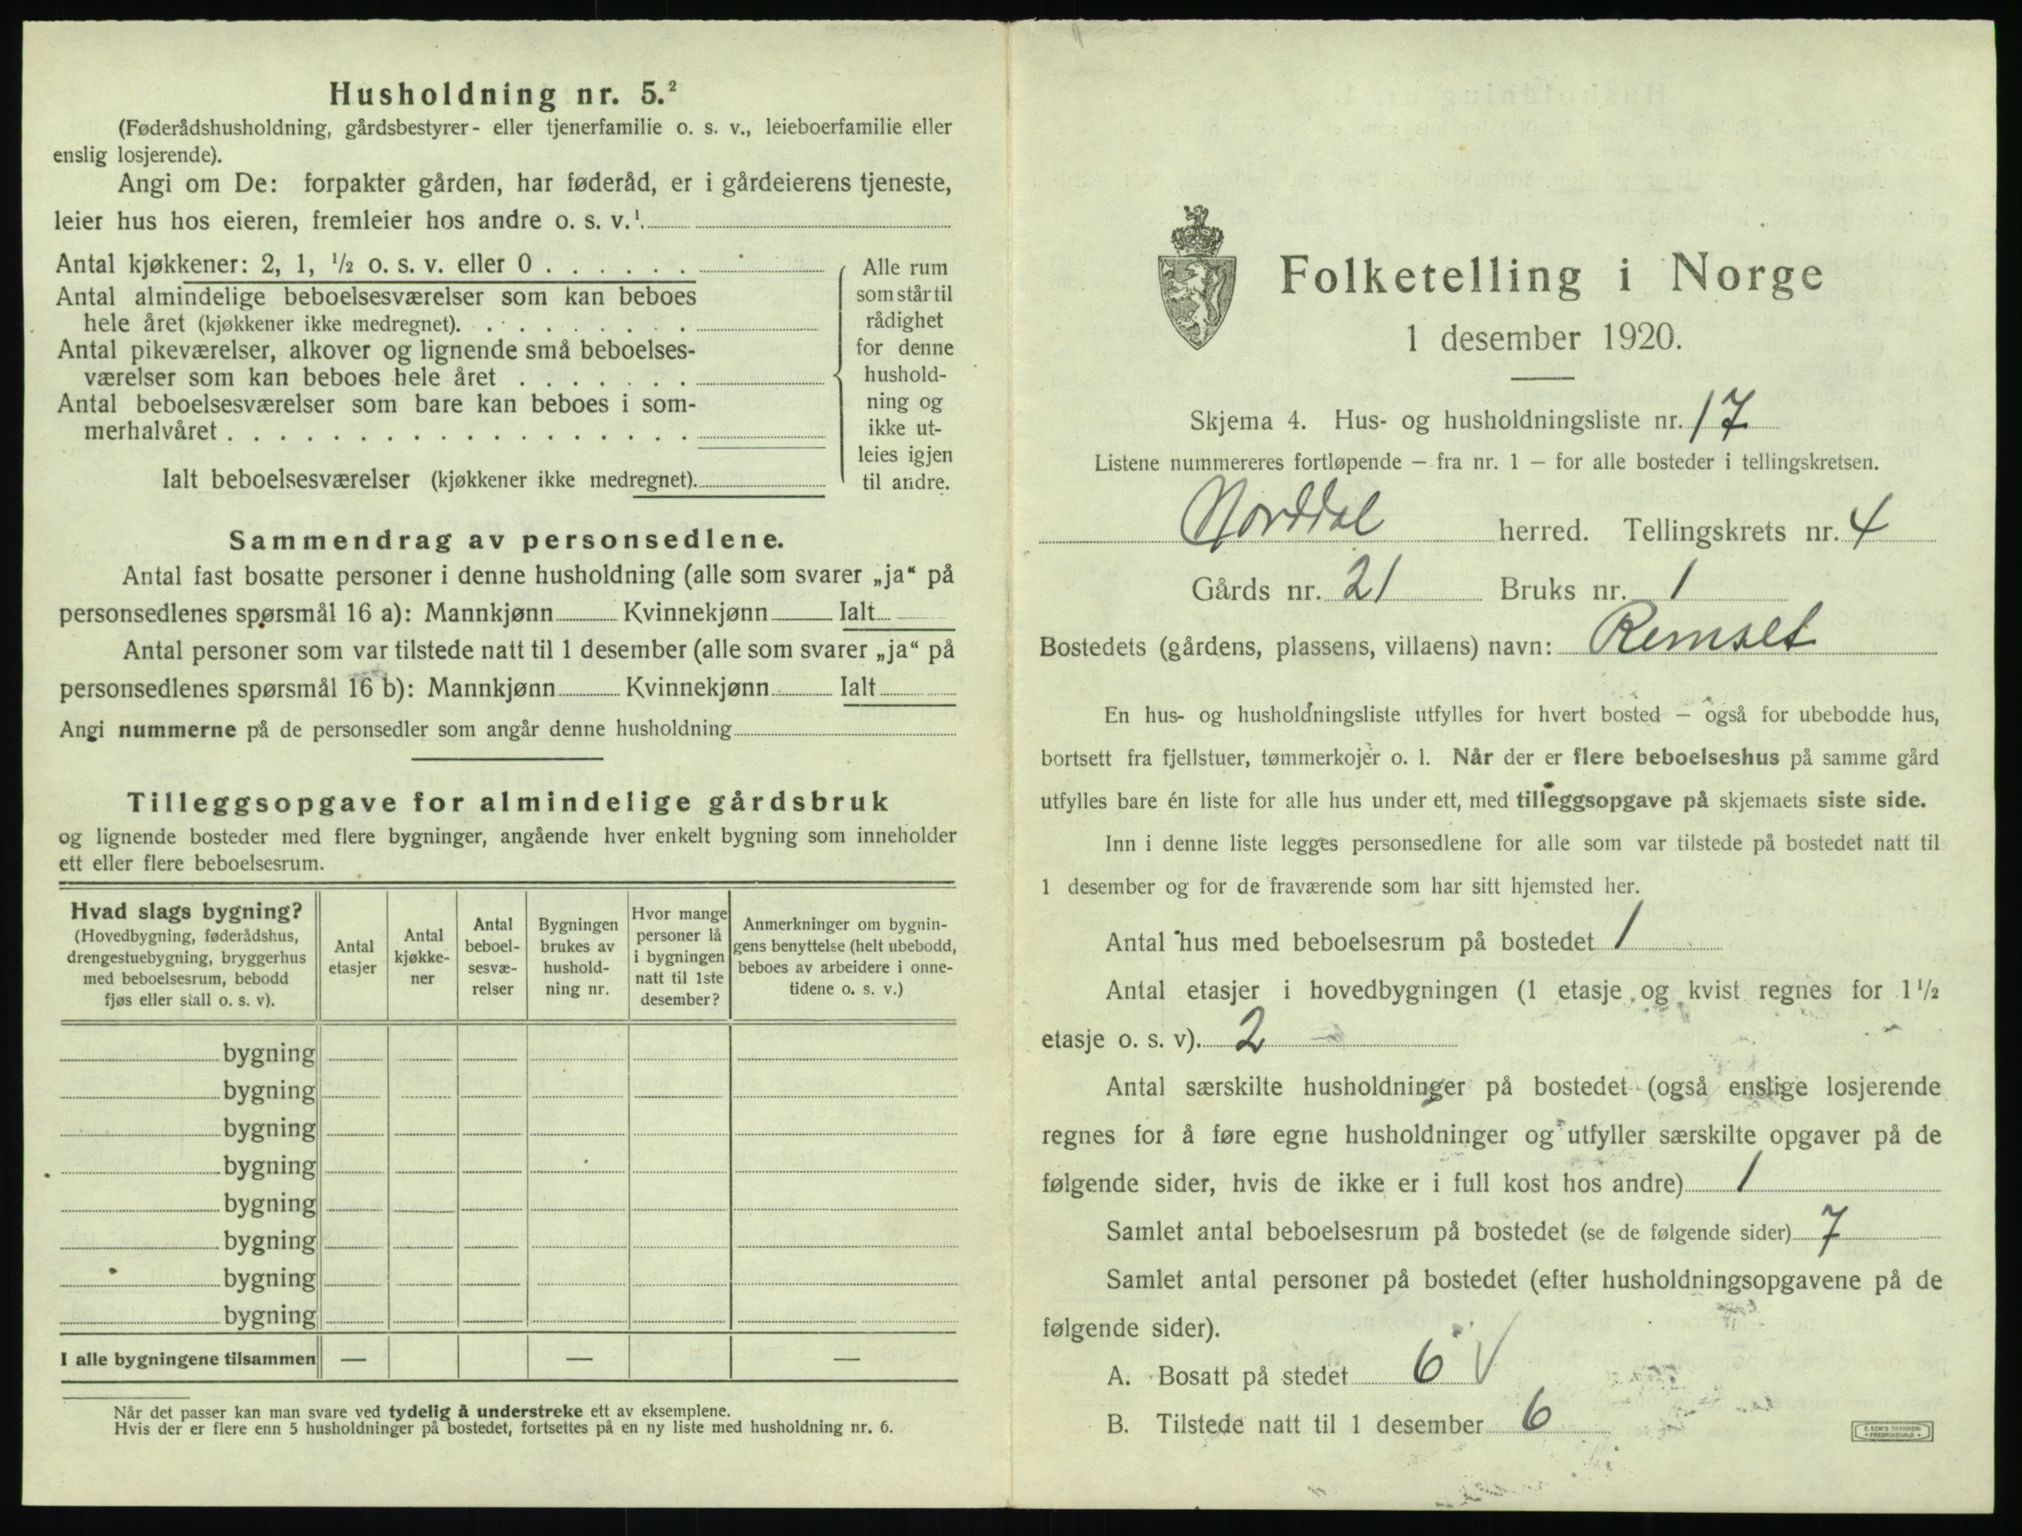 Husholdning nr. 5.²
(Føderådshusholdning, gårdsbestyrer- eller tjenerfamilie o. s. v., leieboerfamilie eller
enslig losjerende).
Angi om De: forpakter gården, har føderåd, er i gårdeierens tjeneste,
leier hus hos eieren, fremleier hos andre o. s. v.¹.
Antal kjøkkener: 2, 1, ½ o. s. v. eller 0
Antal almindelige beboelsesværelser som kan beboes
hele året (kjøkkener ikke medregnet).
Antal pikeværelser, alkover og lignende små beboelses-
værelser som kan beboes hele året
Antal beboelsesværelser som bare kan beboes i som-
merhalvåret
Ialt beboelsesværelser (kjøkkener ikke medregnet).
Alle rum
som står til
rådighet
for denne
hushold-
ning og
ikke ut-
leies igjen
til andre.
Sammendrag av personsedlene.
Antal fast bosatte personer i denne husholdning (alle som svarer „ja“ på
personsedlenes spørsmål 16 a): Mannkjønn Kvinnekjønn Ialt
Antal personer som var tilstede natt til 1 desember (alle som svarer „ja“ på
personsedlenes spørsmål 16 b): Mannkjønn Kvinnekjønn Ialt
Angi nummerne på de personsedler som angår denne husholdning
Tilleggsopgave for almindelige gårdsbruk
og lignende bosteder med flere bygninger, angående hver enkelt bygning som inneholder
ett eller flere beboelsesrum.
Hvad slags bygning?
(Hovedbygning, føderådshus,
drengestuebygning, bryggerhus
med beboelsesrum, bebodd
fjøs eller stall o. s. v).
Antal
etasjer
Antal
kjøkke-
ner
Antal
beboel-
sesvæ-
relser
Bygningen
brukes av
hushold-
ning nr.
Hvor mange
personer lå
i bygningen
natt til 1ste
desember?
Anmerkninger om bygnin-
gens benyttelse (helt ubebodd,
beboes av arbeidere i onne-
tidene o. s. v.)
bygning
bygning
bygning
bygning
bygning
bygning
bygning
bygning
I alle bygningene tilsammen — — —
Når det passer kan man svare ved tydelig å understreke ett av eksemplene.
Hvis der er flere enn 5 husholdninger på bostedet, fortsettes på en ny liste med husholdning nr. 6.
Folketelling i Norge
1 desember 1920.
Skjema 4. Hus- og husholdningsliste nr. 17
Listene nummereres fortløpende – fra nr. 1 – for alle bosteder i tellingskretsen.
Norddal herred. Tellingskrets nr. 4
Gårds nr. 21 Bruks nr. 1
Bostedets (gårdens, plassens, villaens) navn: Remset
En hus- og husholdningsliste utfylles for hvert bosted – også for ubebodde hus,
bortsett fra fjellstuer, tømmerkojer o. l. Når der er flere beboelseshus på samme gård
utfylles bare én liste for alle hus under ett, med tilleggsopgave på skjemaets siste side.
Inn i denne liste legges personsedlene for alle som var tilstede på bostedet natt til
1 desember og for de fraværende som har sitt hjemsted her.
Antal hus med beboelsesrum på bostedet 1
Antal etasjer i hovedbygningen (1 etasje og kvist regnes for 1½
etasje o. s. v). 2
Antal særskilte husholdninger på bostedet (også enslige losjerende
regnes for å føre egne husholdninger og utfyller særskilte opgaver på de
følgende sider, hvis de ikke er i full kost hos andre) 1
Samlet antal beboelsesrum på bostedet (se de følgende sider) 7
Samlet antal personer på bostedet (efter husholdningsopgavene på de
følgende sider).
A. Bosatt på stedet 6 V
B. Tilstede natt til 1 desember 6